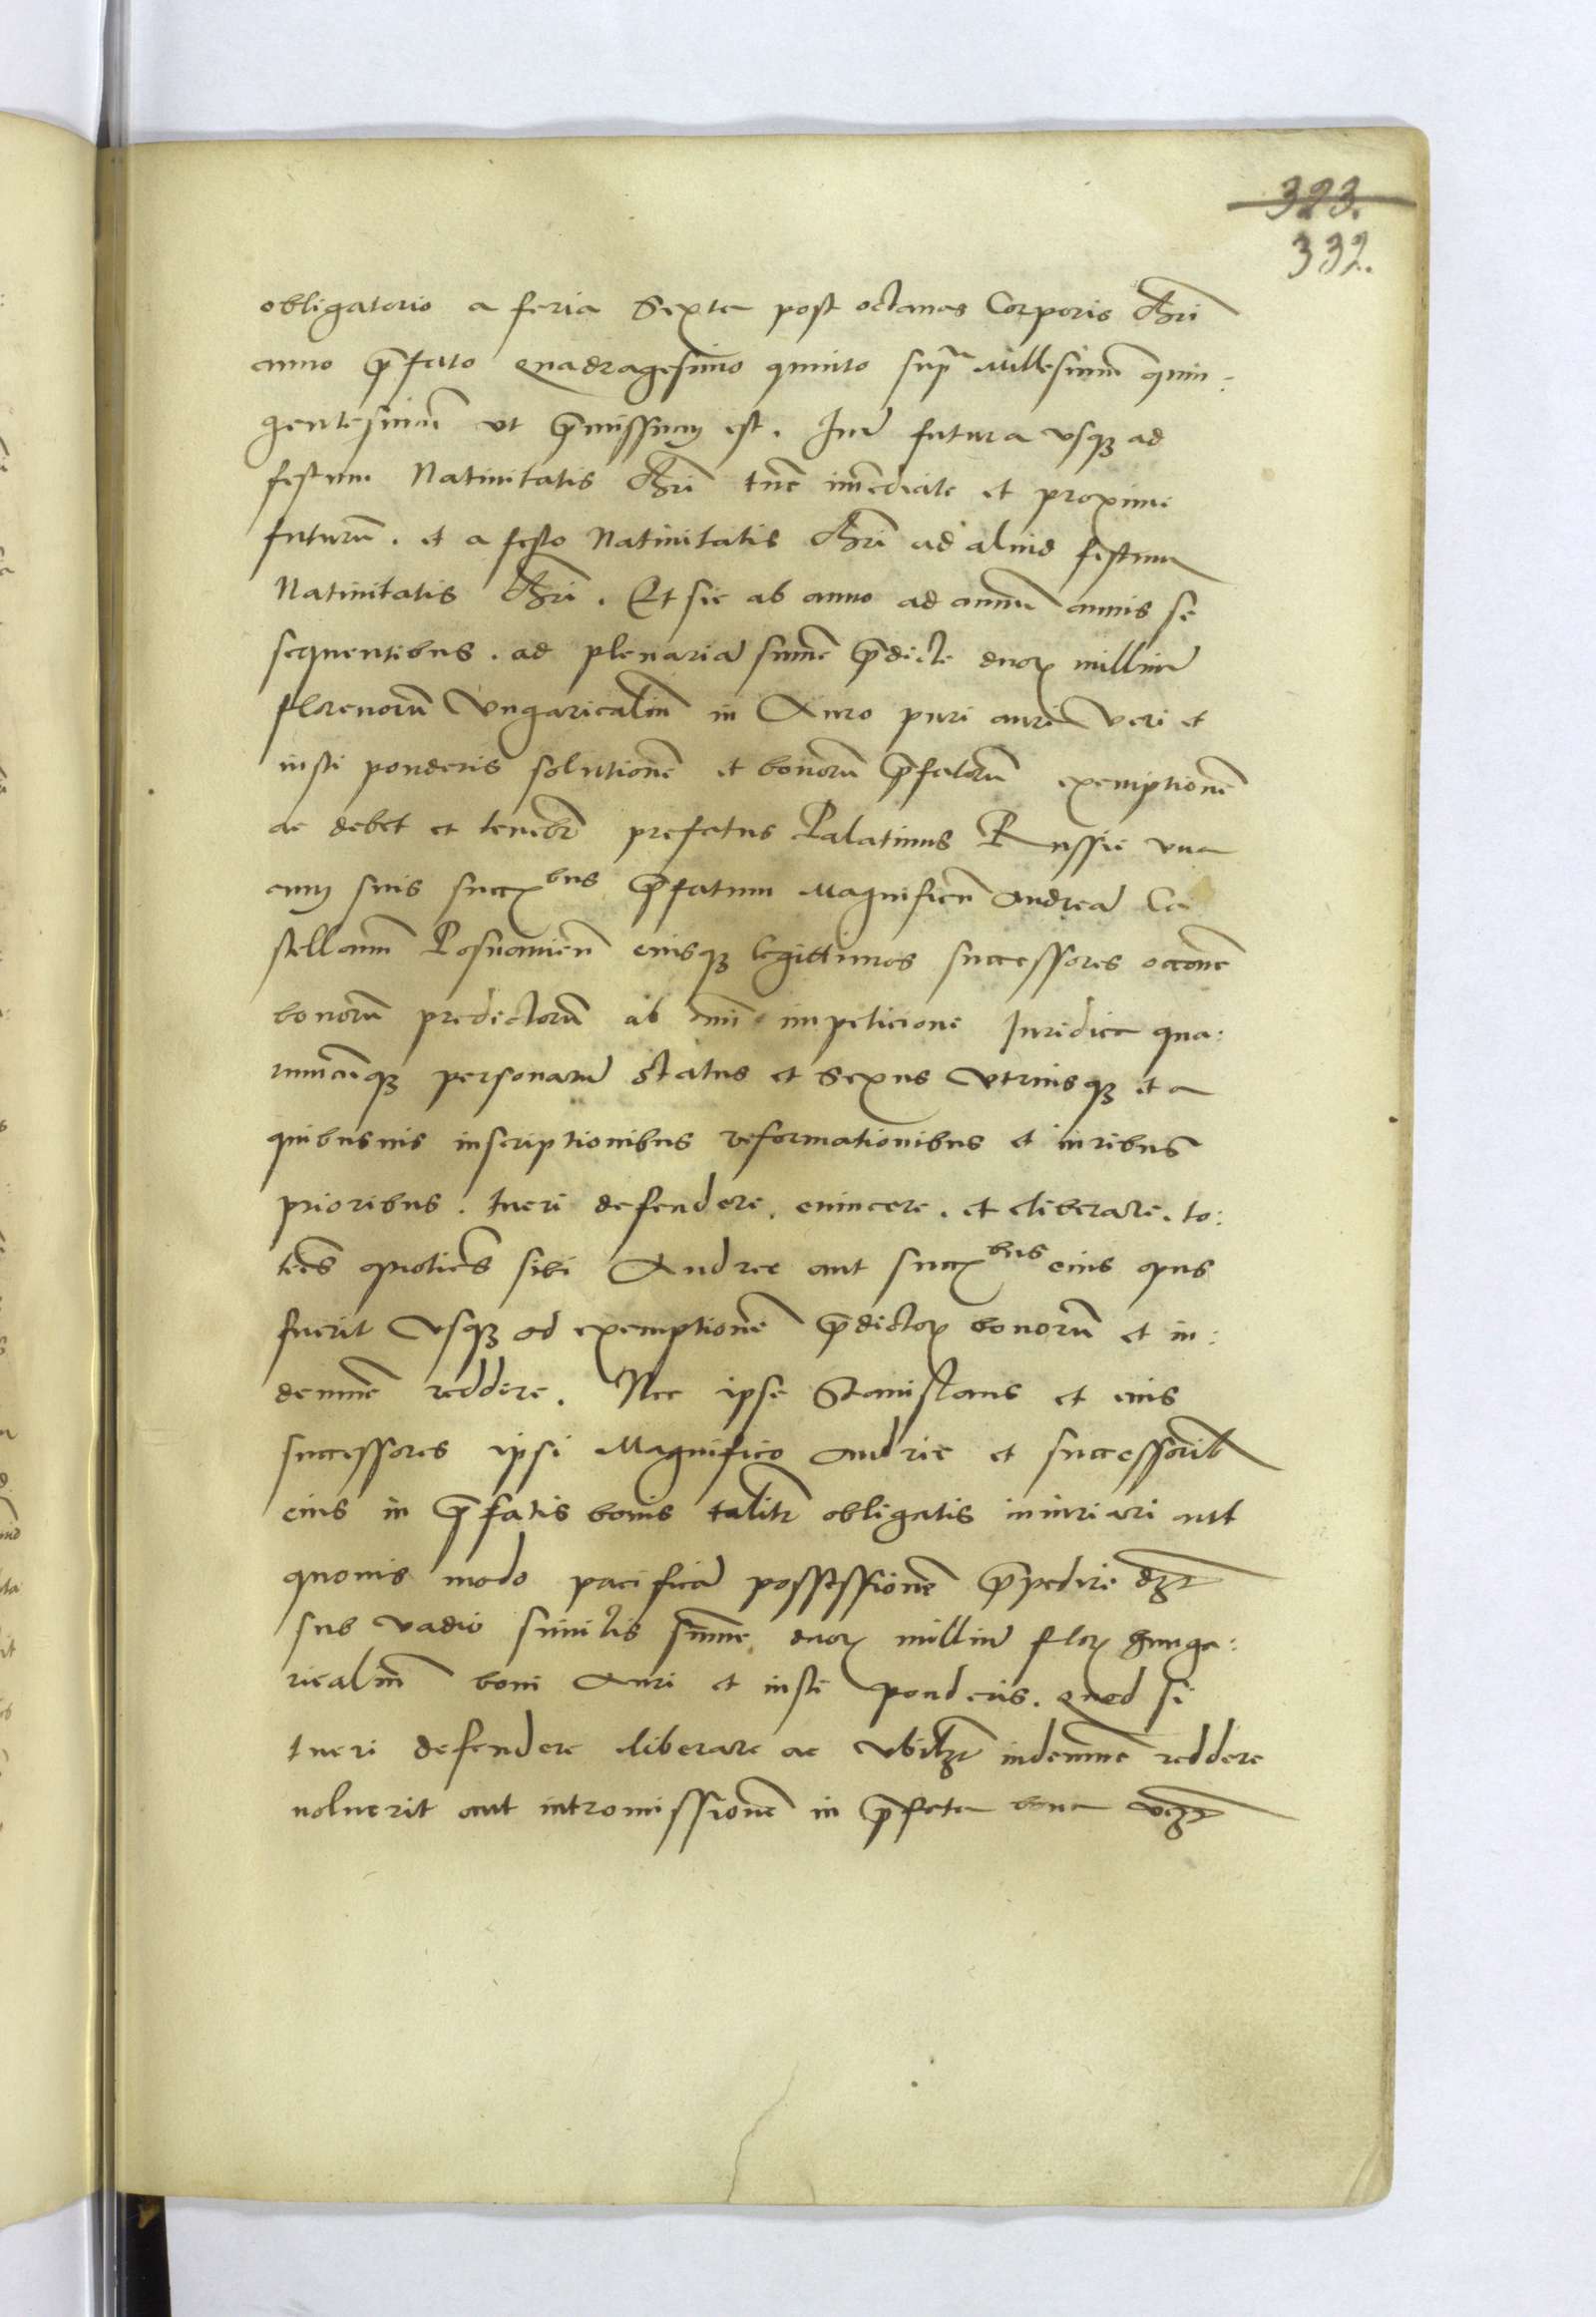 323.
332.
obligatorio a feria Sexta post octauas Corporis Chri
anno p̄fato Quadragesimo quinto supra Millesimum quin:
gentesimū vt p̄missum est. futura vsqȝ ad
festum Natiuitatis Chri tūc imēdiate et proxime
futurū. et a festo Natiuitatis Chri ad aliud festum
Natiuitatis Chri. Et sic ab anno ad annū annis se
sequentibus. ad plenariā sūme p̄dicte duoꝝ milliū
florenorū Vngaricaliū in Auro puri auri Veri et
iusti ponderis solutionē et bonorū p̄fatorū exemptionē
ac debet et tenebr̄ prefatus Palatinus Russie vna
cum suis succꝝbus p̄fatum Magnificū Andreā Ca
stellanū Posnanień eiusqȝ legittimos successores occōne
bonorū predictorū ab om̄i impeticione Iuridica qua:
rumcūqȝ personarū status et Sexus Vtriusqȝ et a
quibusuis inscriptionibus reformationibus et iuribus
prioribus. tueri defendere. euincere. et liberare. to:
ties quoties sibi Andree aut succꝝbus eius opus
fuerit Vsqȝ ad exemptionē p̄dictoꝝ bonorū et in:
demnē reddere. Nec ipse Stanislaus et eius
successores ipsi Magnifico Andrie et successorib
eius in p̄fatis bonis talitr obligatis iniuriari aut
quouis modo pacificā possessionē p̄pedire dȝt
sub vadio similis sūme duoꝝ milliū floꝝ hunga:
ricaliū boni Auri et iusti ponderis. Quod si
tueri defendere liberare ac indemnē reddere
noluerit aut intromissionē in p̄fata bona